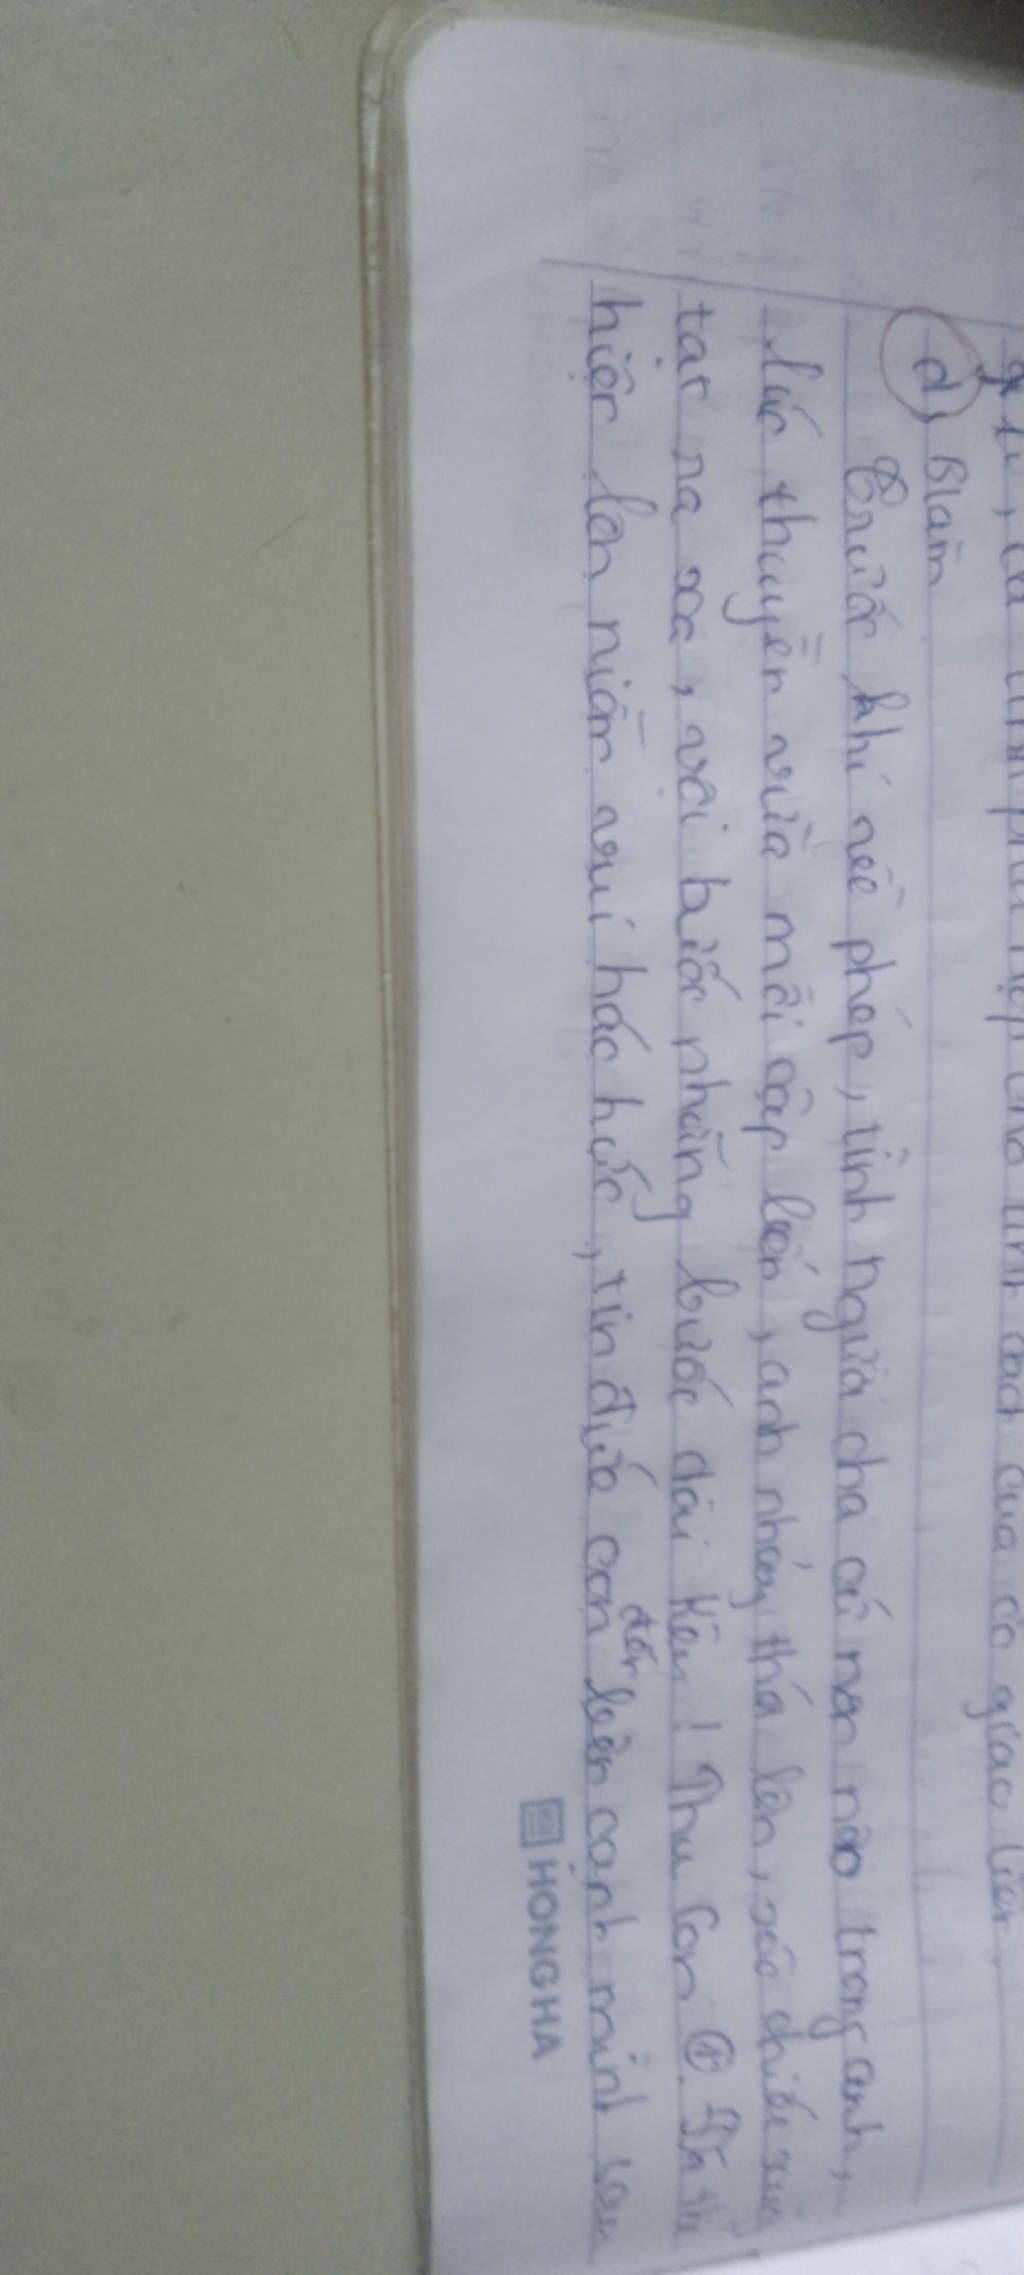 , cả tính phù hợp cho tính cách của cô giao liên.
d, Blàm
Trước khi về phép, tình người cha cứ nôn nao trong anh,
lúc thuyền vừa mới cập bến, anh nhảy thó lên, xô chiếc xuồng
tạt ra xa, vội bước những bước dài kêu! Thu Con ①. Đã thể
hiện lên niềm vui háo hức, tin đứa con đến bên cạnh mình sau
HONG HA